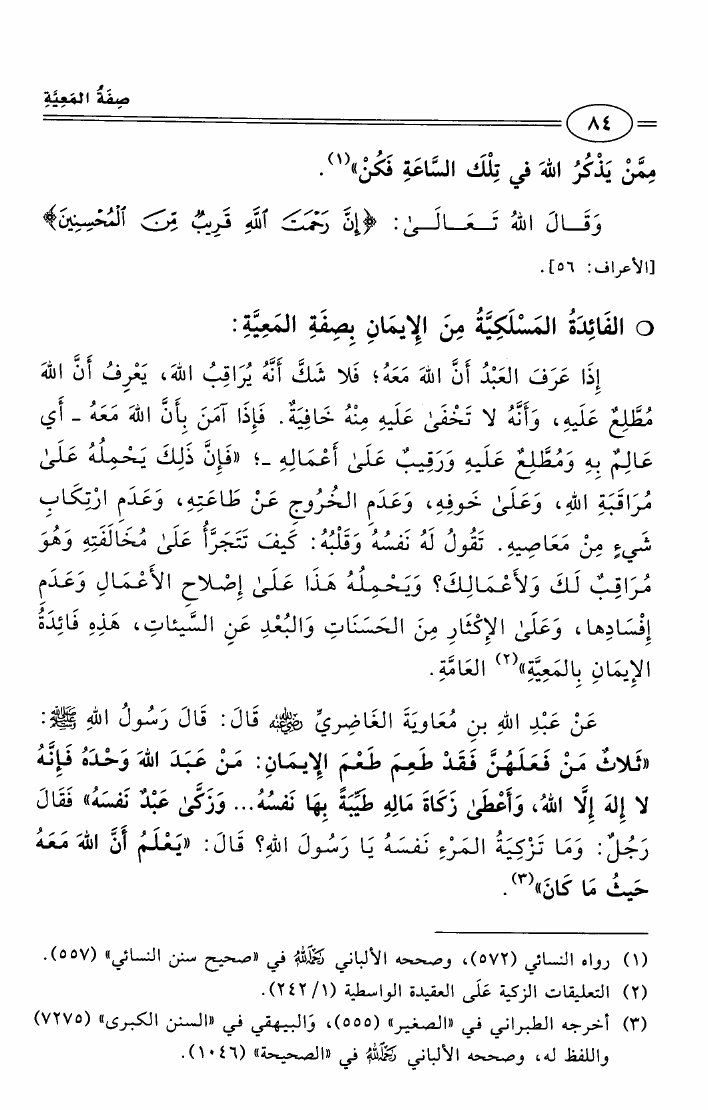 صِفَةُ المَعِيَّةِ
٨٤
مِمَّنْ يَذْكُرُ اللهَ في تِلْكَ السَّاعَةِ فَكُنْ»(١).
وَقَـالَ اللهُ تَـعَـالَـىٰ: ﴿إِنَّ رَحْمَتَ ٱللَّهِ قَرِيبٌ مِّنَ ٱلْمُحْسِنِينَ﴾
[الأعراف: ٥٦].
○ الفَائِدَةُ المَسْلَكِيَّةُ مِنَ الإِيمَانِ بِصِفَةِ المَعِيَّةِ:
إِذَا عَرَفَ العَبْدُ أَنَّ اللهَ مَعَهُ؛ فَلا شَكَّ أَنَّهُ يُرَاقِبُ اللهَ، يَعْرِفُ أَنَّ اللهَ
مُطَّلِعٌ عَلَيهِ، وَأَنَّهُ لا تَخْفَىٰ عَلَيهِ مِنْهُ خَافِيَةٌ. فَإِذَا آمَنَ بِأَنَّ اللهَ مَعَهُ ـ أَي
عَالِمٌ بِهِ وَمُطَّلِعٌ عَلَيهِ وَرَقِيبٌ عَلَىٰ أَعْمَالِهِ ـ؛ «فَإِنَّ ذَلِكَ يَحْمِلُهُ عَلَىٰ
مُرَاقَبَةِ اللهِ، وَعَلَىٰ خَوفِهِ، وَعَدَمِ الخُرُوجِ عَنْ طَاعَتِهِ، وَعَدَمِ ارْتِكَابِ
شَيءٍ مِنْ مَعَاصِيهِ. تَقُولُ لَهُ نَفسُهُ وَقَلْبُهُ: كَيفَ تَتَجَرَّأُ عَلَىٰ مُخَالَفَتِهِ وَهُوَ
مُرَاقِبٌ لَكَ وَلأَعْمَالِكَ؟ وَيَحْمِلُهُ هَذَا عَلَىٰ إِصْلَاحِ الأَعْمَالِ وَعَدَمِ
إِفْسَادِهَا، وَعَلَىٰ الإِكْثَارِ مِنَ الحَسَنَاتِ وَالبُعْدِ عَنِ السَّيئاتِ، هَذِهِ فَائِدَةُ
الإِيمَانِ بِالمَعِيَّةِ»(٢) العَامَّةِ.
عَنْ عَبْدِ اللهِ بنِ مُعَاوِيَةَ الغَاضِرِيِّ رضي الله عنه قَالَ: قَالَ رَسُولُ اللهِ ﷺ:
«ثَلَاثٌ مَنْ فَعَلَهُنَّ فَقَدْ طَعِمَ طَعْمَ الإِيمَانِ: مَنْ عَبَدَ اللهَ وَحْدَهُ فَإِنَّهُ
لا إِلهَ إِلَّا اللهُ، وَأَعْطَىٰ زَكَاةَ مَالِهِ طَيِّبَةً بِهَا نَفسُهُ... وَزَكَّىٰ عَبْدٌ نَفسَهُ» فَقَالَ
رَجُلٌ: وَمَا تَزْكِيَةُ المَرْءِ نَفسَهُ يَا رَسُولَ اللهِ؟ قَالَ: «يَعْلَمُ أَنَّ اللهَ مَعَهُ
حَيثُ مَا كَانَ»(٣).
(١) رواه النسائي (٥٧٢)، وصححه الألباني رحمه الله في «صحيح سنن النسائي» (٥٥٧).
(٢) التعليقات الزكية عَلَى العقيدة الواسطية (١/٢٤٢).
(٣) أخرجه الطبراني في «الصغير» (٥٥٥)، وَالبيهقي في «السنن الكبرى» (٧٢٧٥)
واللفظ له، وصححه الألباني رحمه الله في «الصحيحة» (١٠٤٦).